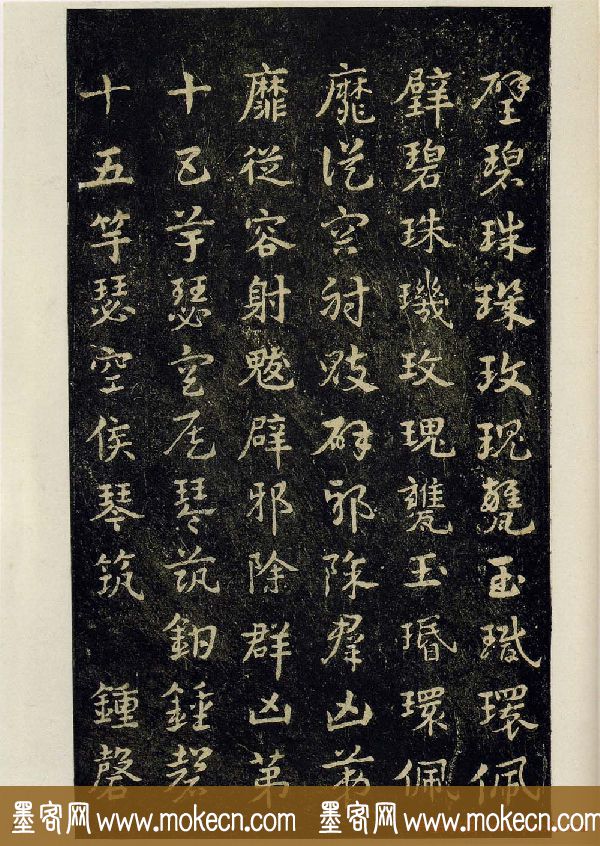 璧碧珠璣玫瑰甕玉瑁環佩
璧碧珠璣玫瑰甕玉瑁環佩
靡從容射魃辟邪除羣凶第
靡從容射魃辟邪除群凶第
十五竽瑟空侯琴筑鍾磬
十五竽瑟空侯琴筑鍾磬
墨客网 www.mokecn.com 墨客网 www.mokecn.com